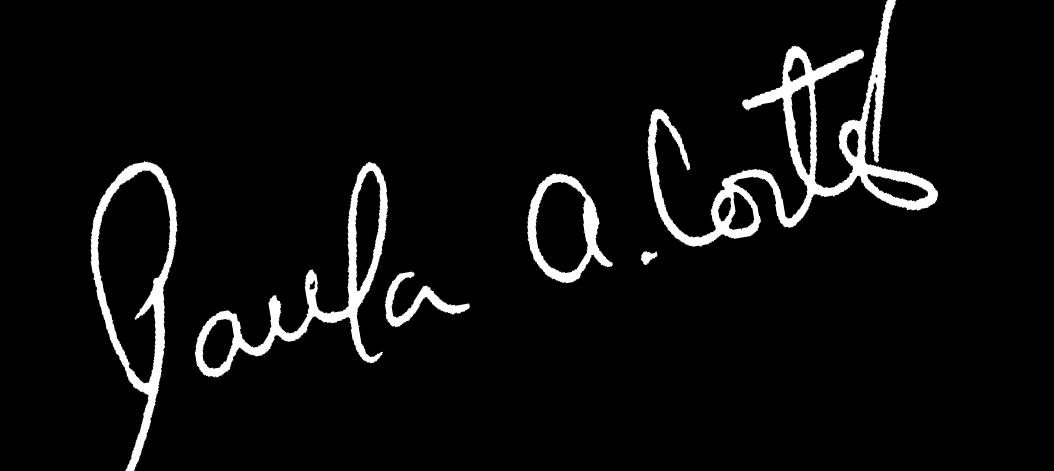 Paula A. Cortes